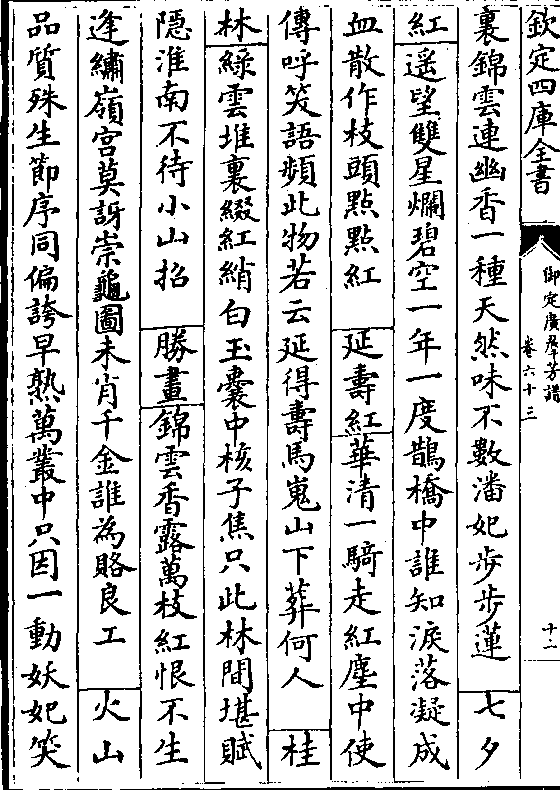 欽定四庫全書
御定廣羣芳譜
卷六十三
十二
裏錦雲連幽香一種天然味不數潘妃步步蓮 七夕
紅 遥望雙星爛碧空一年一度鵲橋中誰知淚落凝成
血散作枝頭點點紅 延壽紅 華清一騎走紅塵中使
傳呼笑語頻此物若云延得壽馬嵬山下葬何人 桂
林 綵雲堆裏綴紅綃白玉囊中核子焦只此林間堪賦
隠淮南不待小山招 勝畫 錦雲香露萬枝紅恨不生
逢繡嶺宮莫訝崇龜圖未肖千金誰為賂良工 火山
品質殊生節序同偏誇早熟萬叢中只因一動妖妃笑